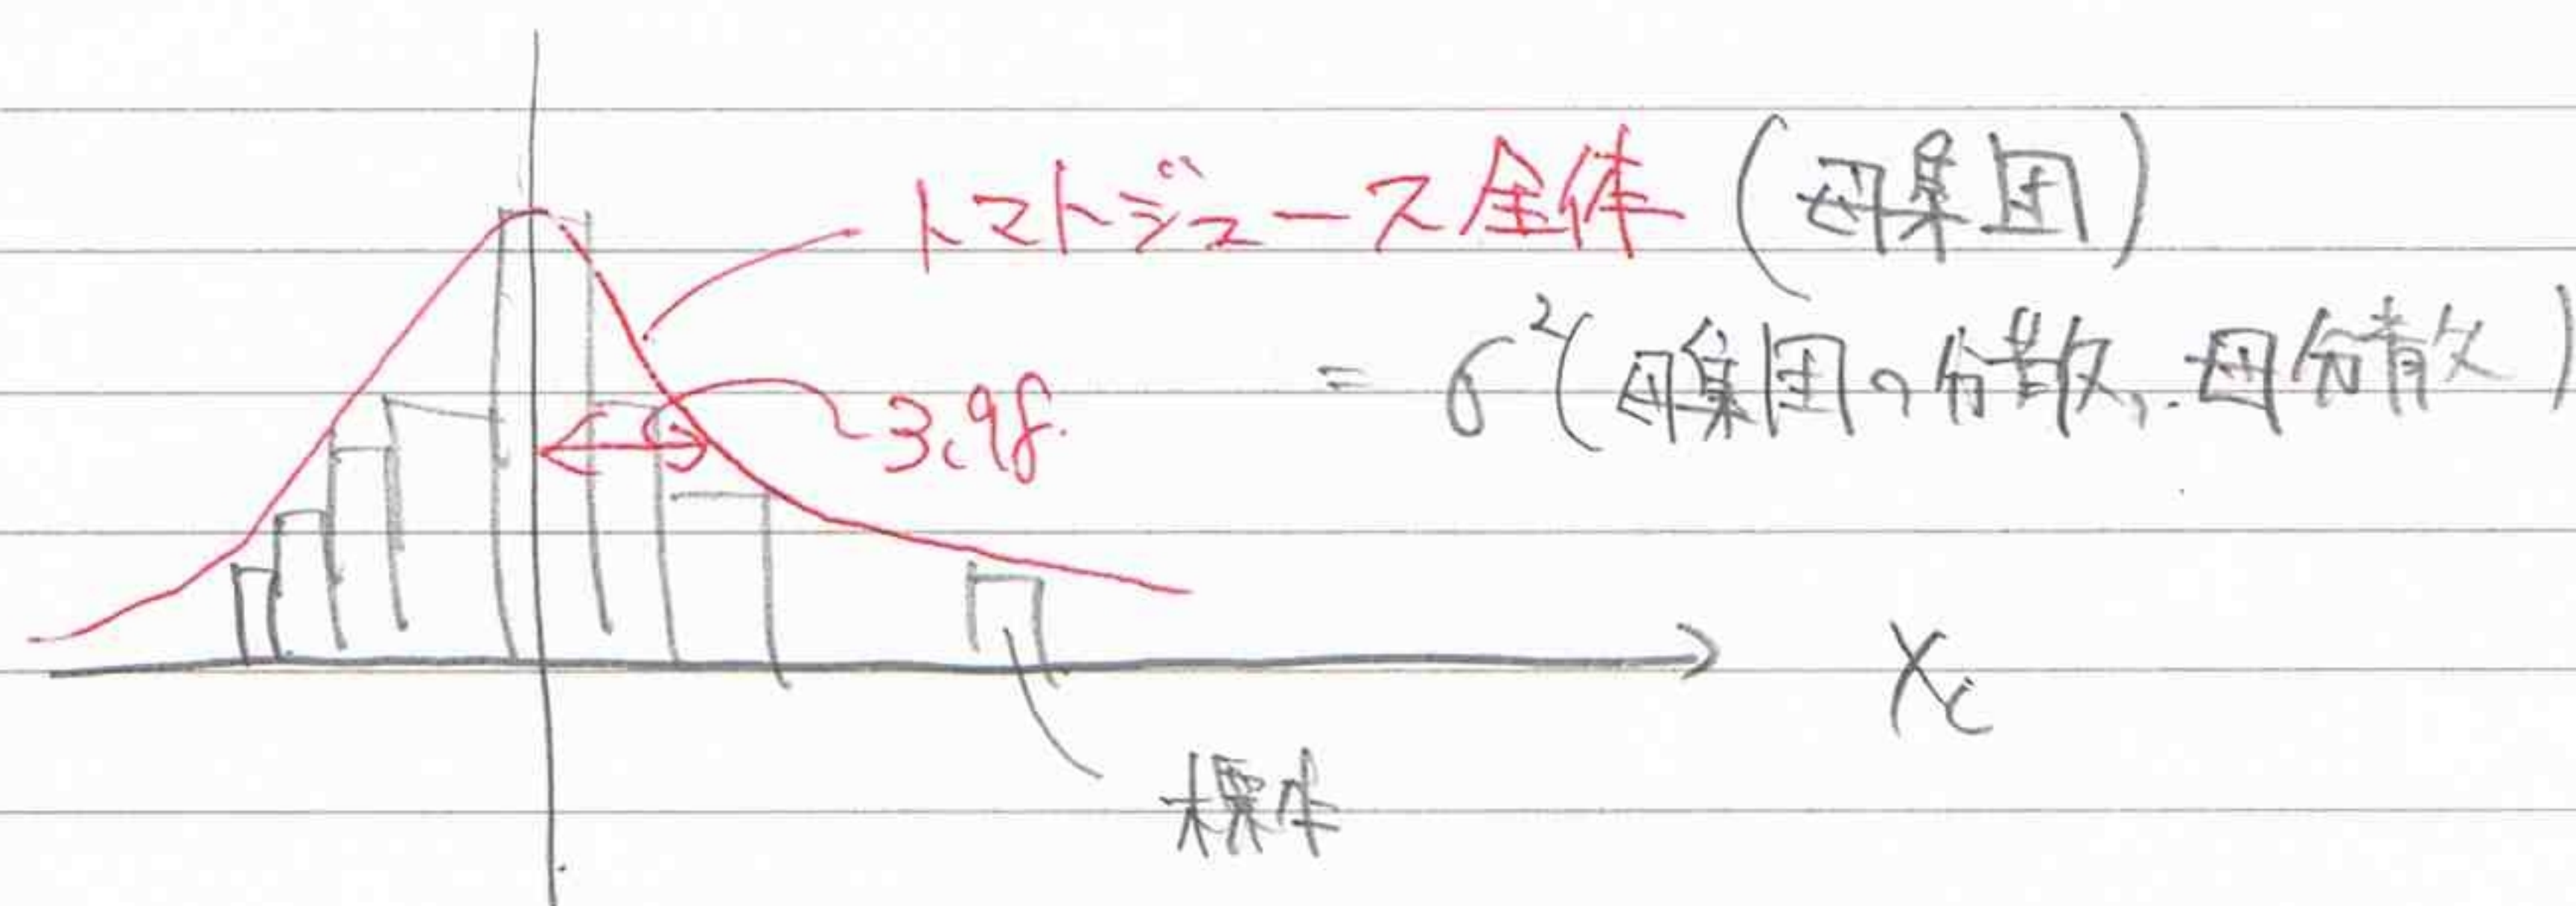 トマトジュース全体 (母集団)
= σ²(母集団の分散、母分散)
3.98
xi
標本